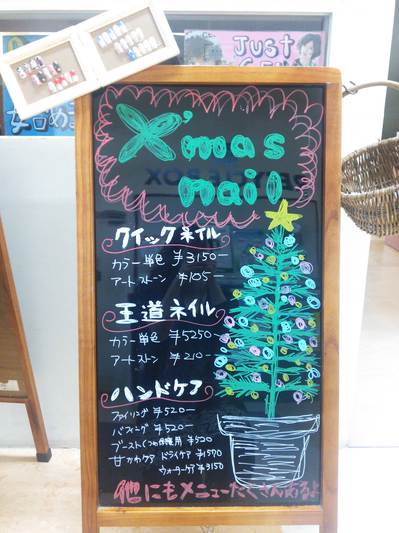 X'mas
nail
クイックネイル
カラー単色 ¥3150ー
アートストーン ¥105ー
王道ネイル
カラー単色 ¥5250ー
アートストーン ¥210ー
ハンドケア
ファイリング ¥520ー
バフィーグ ¥520ー
¥520
甘かわケア ドライケア ¥1590
ウォーターケア ¥3150
他にもメニューたくさんあるよ
JUST